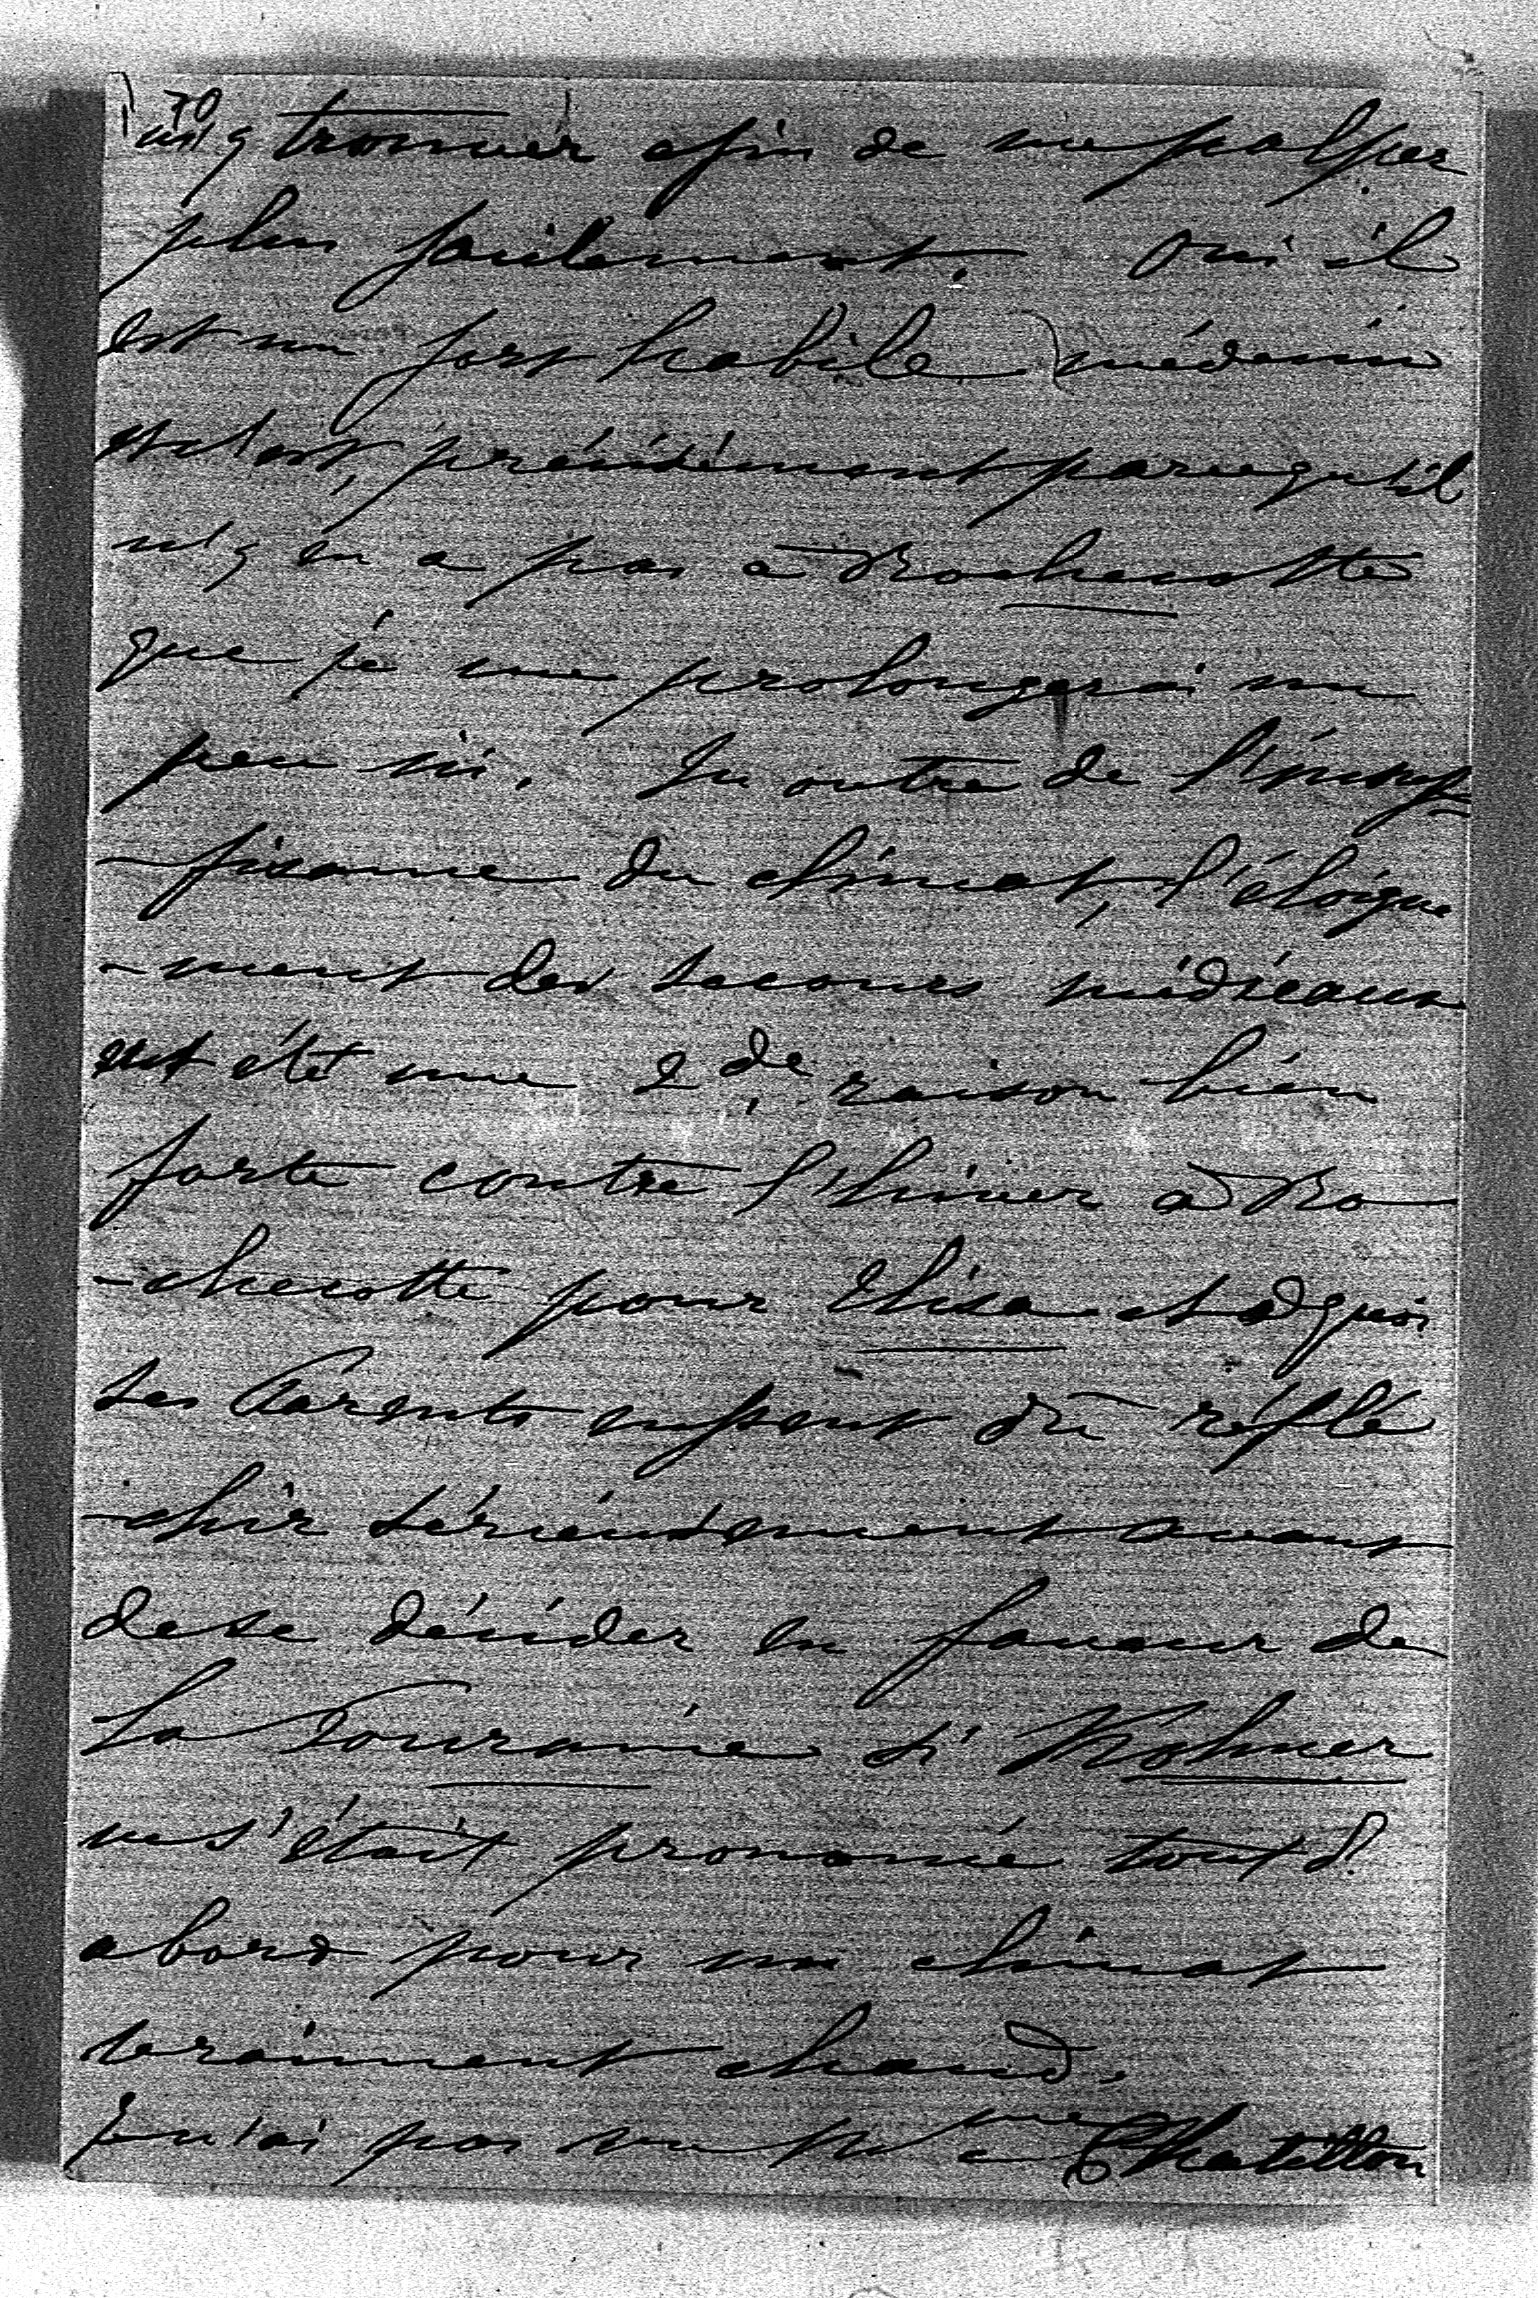 70
m'y trouver afin de me palper
plus facilement. Oui il
est un fort habile médecin
et c'est, précisément parcequ'il
n'y en a pas à Rochecotte
que je me prolongerai un
peu ici. En outre de l'insuf-
-fisance du climat, l'éloigne
-ment des secours médicaux
eut été une 2de raison bien
forte contre l'hiver à Ro-
-checotte pour Elisa et à quoi
ses Parents eussent dû réflé
-chir sérieusement avant
de se décider en faveur de
la Touraine si Röhner
ne s'était prononcé tout d'
abord pour un climat
vraiment chaud.
Je n'ai pas vu Me de Chatillon